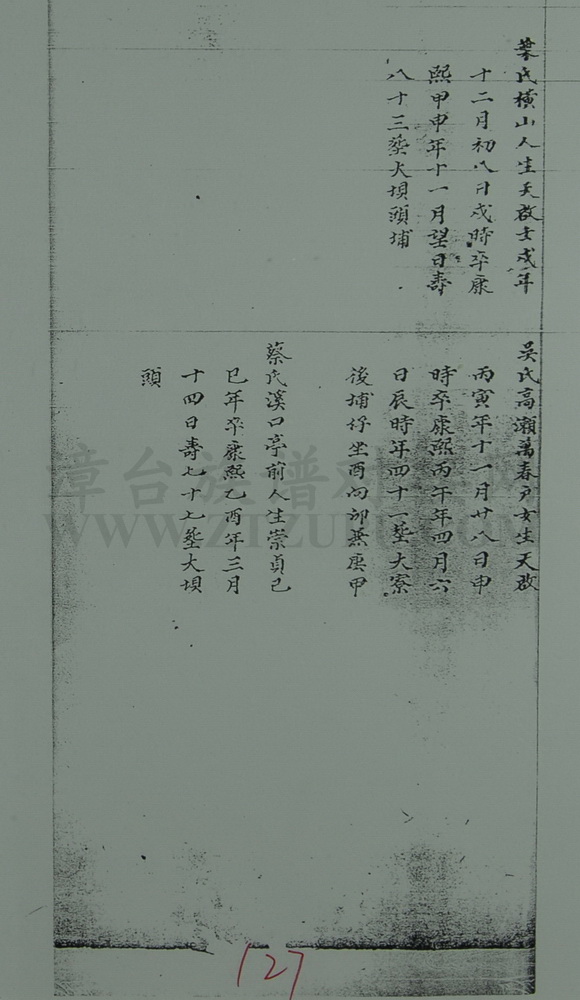 葉氏橫山人生天啟壬戌年
十二月初八日戌時卒康
熙甲申年十一月望日壽
八十三塟大垻頭埔
吳氏高瀨萬春戶女生天啟
丙寅年十一月廿八日申
時卒康熙丙午年四月六
日辰時年四十一塟大寮
後埔仔坐酉向卯兼庚甲
蔡氏溪口亭前人生崇貞己
巳年卒康熙乙酉年三月
十四日壽七十七塟大垻
頭
漳台族譜
WWW.ZTZUPU.COM
127